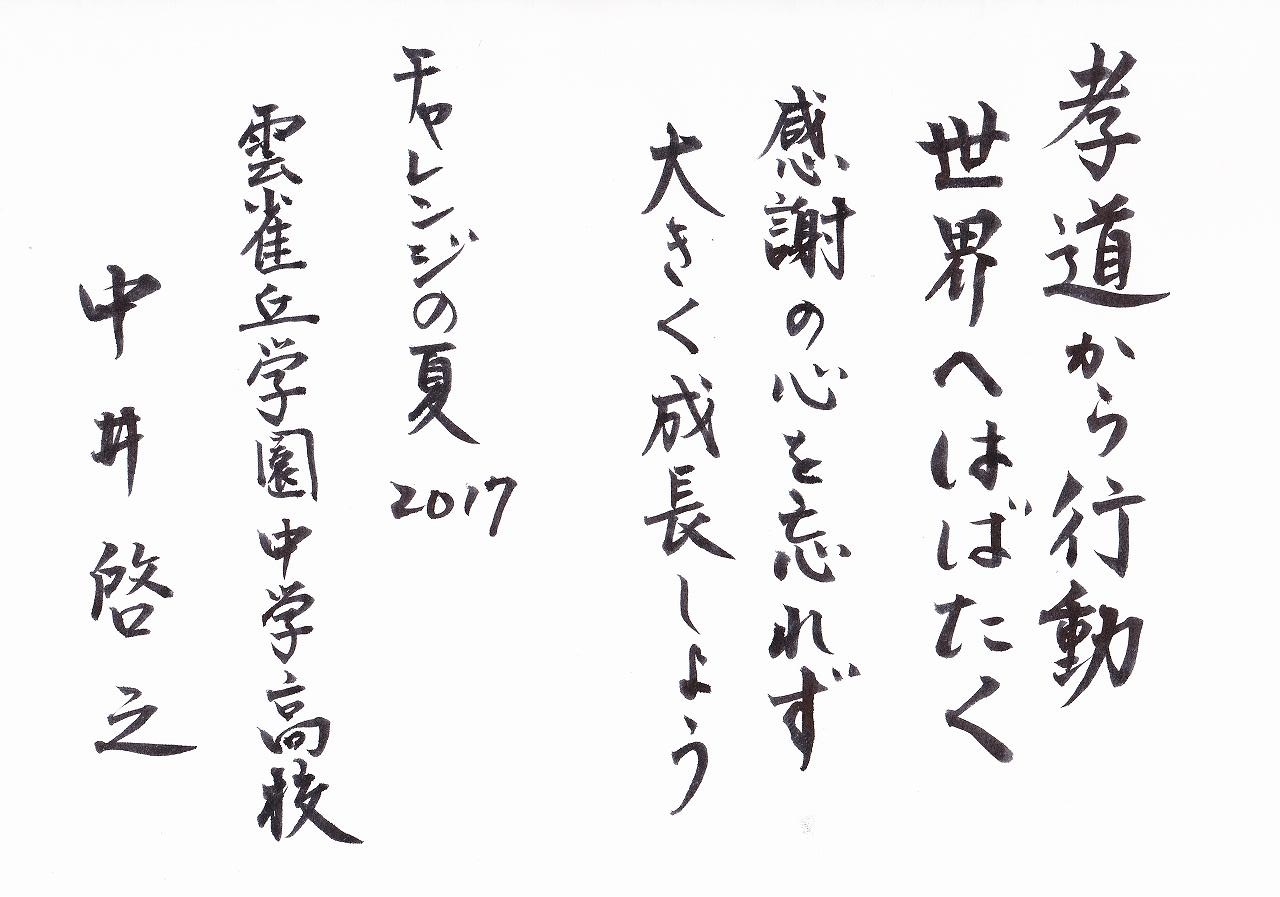 孝道から行動
世界へはばたく
感謝の心を忘れず
大きく成長しよう
チャレンジの夏 2017
雲雀丘学園中学高校
中井啓之